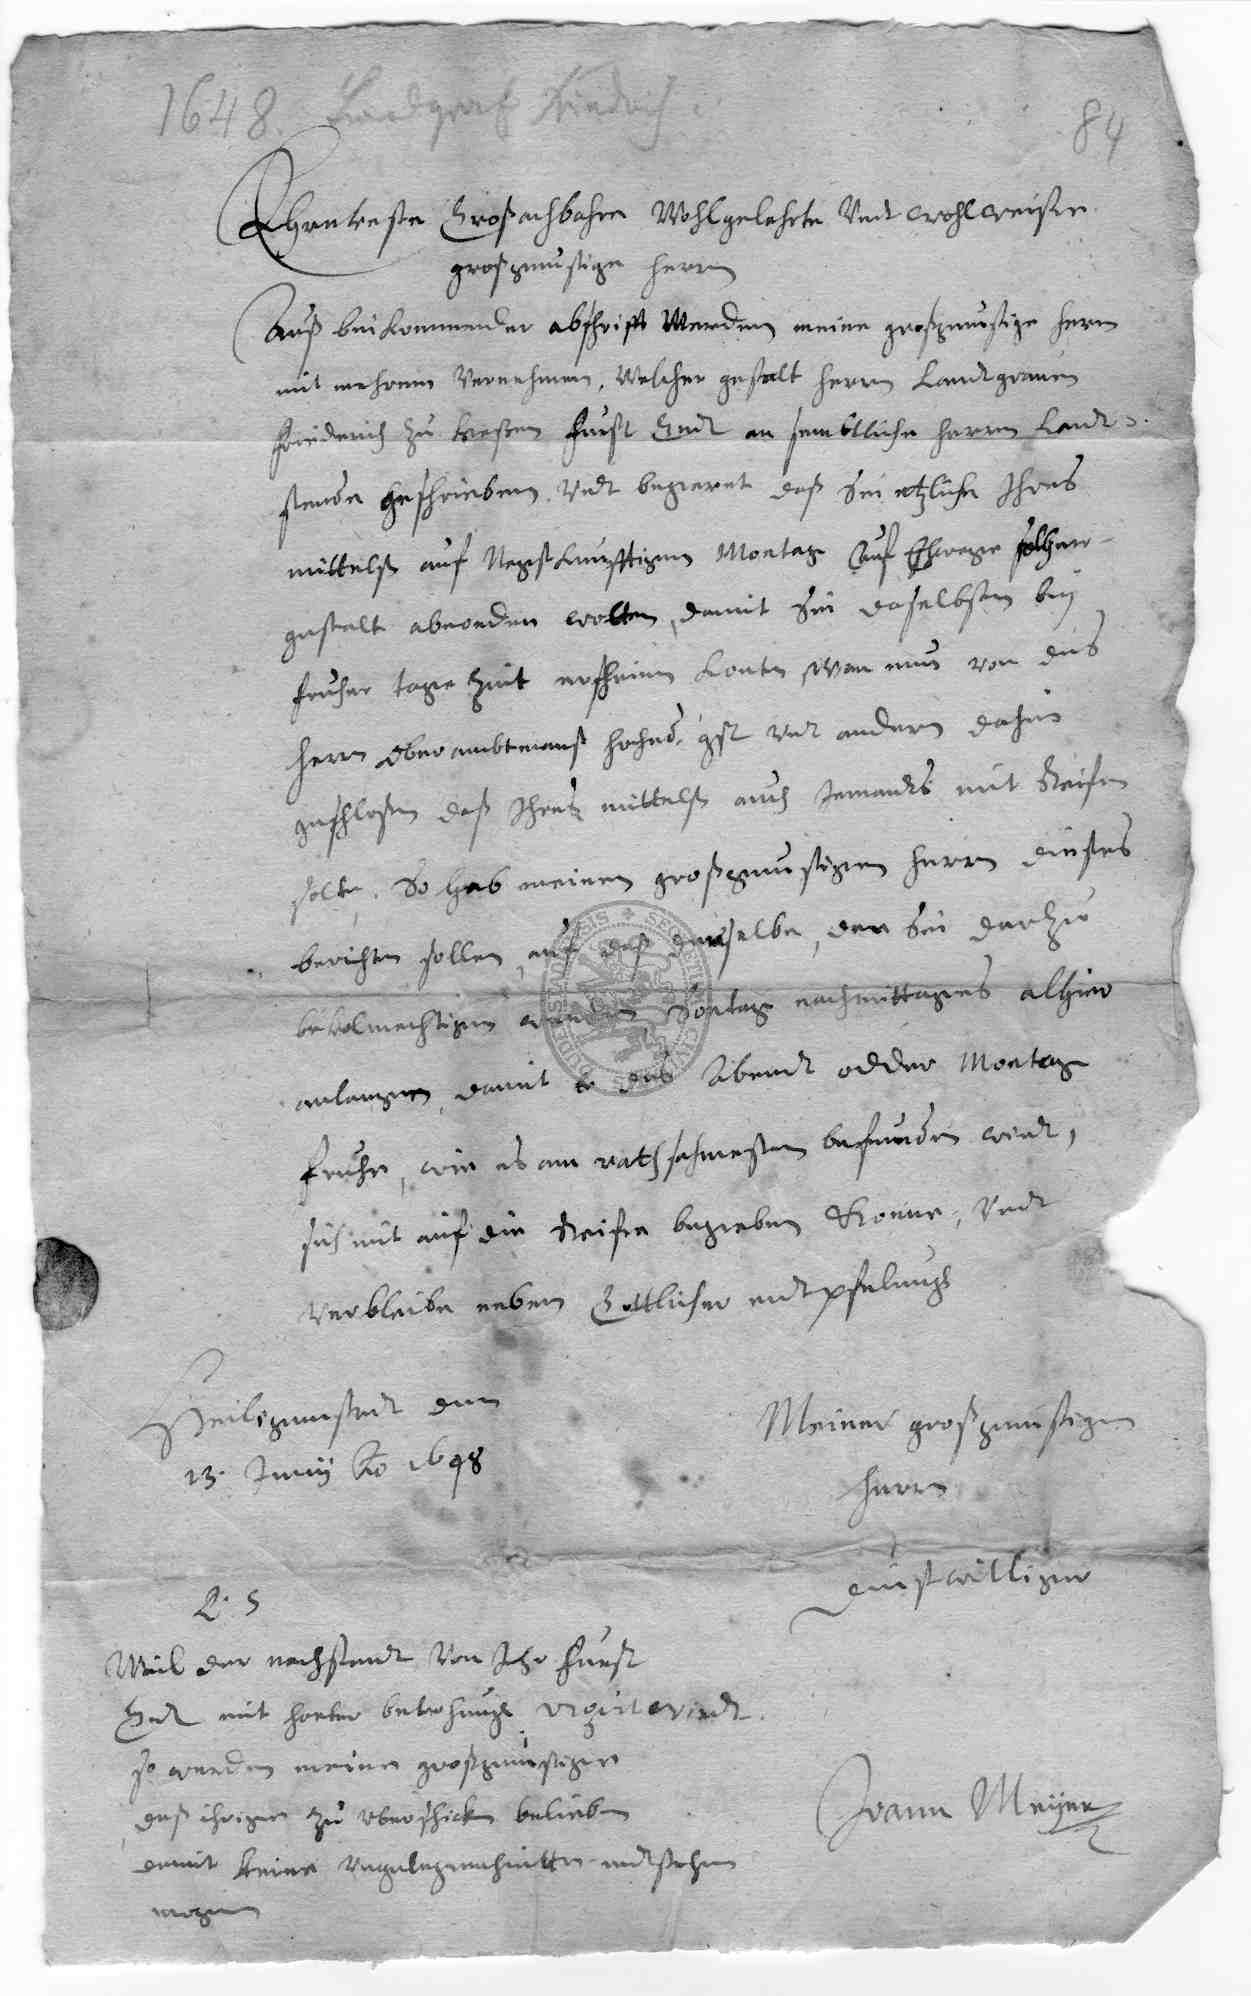 1648. Landgraf Friedrich
84
Ehrnveste Großachtbahre Wohlgelahrte Undt wohlweise
großgünstige Herrn
Auß beikommender abschrifft Werden meine großgünstige Herrn
mit mehrem Vernehmen, Welcher gestalt Herrn Landtgraven
Friederich zu Heßen Fürstl Gndl an sembtliche Herrn Landt
stende geschrieben Undt begeret daß Sie etzliche Ihres
mittelß auf Negstkunfftigen Montag auf Eschwege solcher
gestalt abordnen wolten, damit Sie daselbsten bey
fruher tage Zeit erscheinen konten, Wan nun von des
Herrn Oberambtmanß Undt andern dahin
geschloßen daß Ihres mittelß auch Jemandts mit Reisen
solte. So hab meinen großgünstigen Herrn dießes
berichten sollen, auf daß dieselbe, den Sie darzu
bevolmechtigen werden, Sontag nachmittages alhier
anlange, damit er deß Abendt odder Montag
fruhe, wie es am rathsahmesten befunden wirdt,
sich mit auf die Reise begeben könne, Undt
Verbleibe neben Gottlicher entpfelung
Heiligenstadt den
13. Junij Ao 1648
Meiner großgünstigen
Herrn
dienstwilliger
Joann Meyer
P. S
Weil der nachstandt Von Ihr Fürstl
Gndl mit harter betrohung urgirt wirdt
so werden meine großgünstige
daß ihrige zu uberschicken belieben
damit keine Ungelegenheitten entstehen
mogen
SECRETUM CIVITATIS